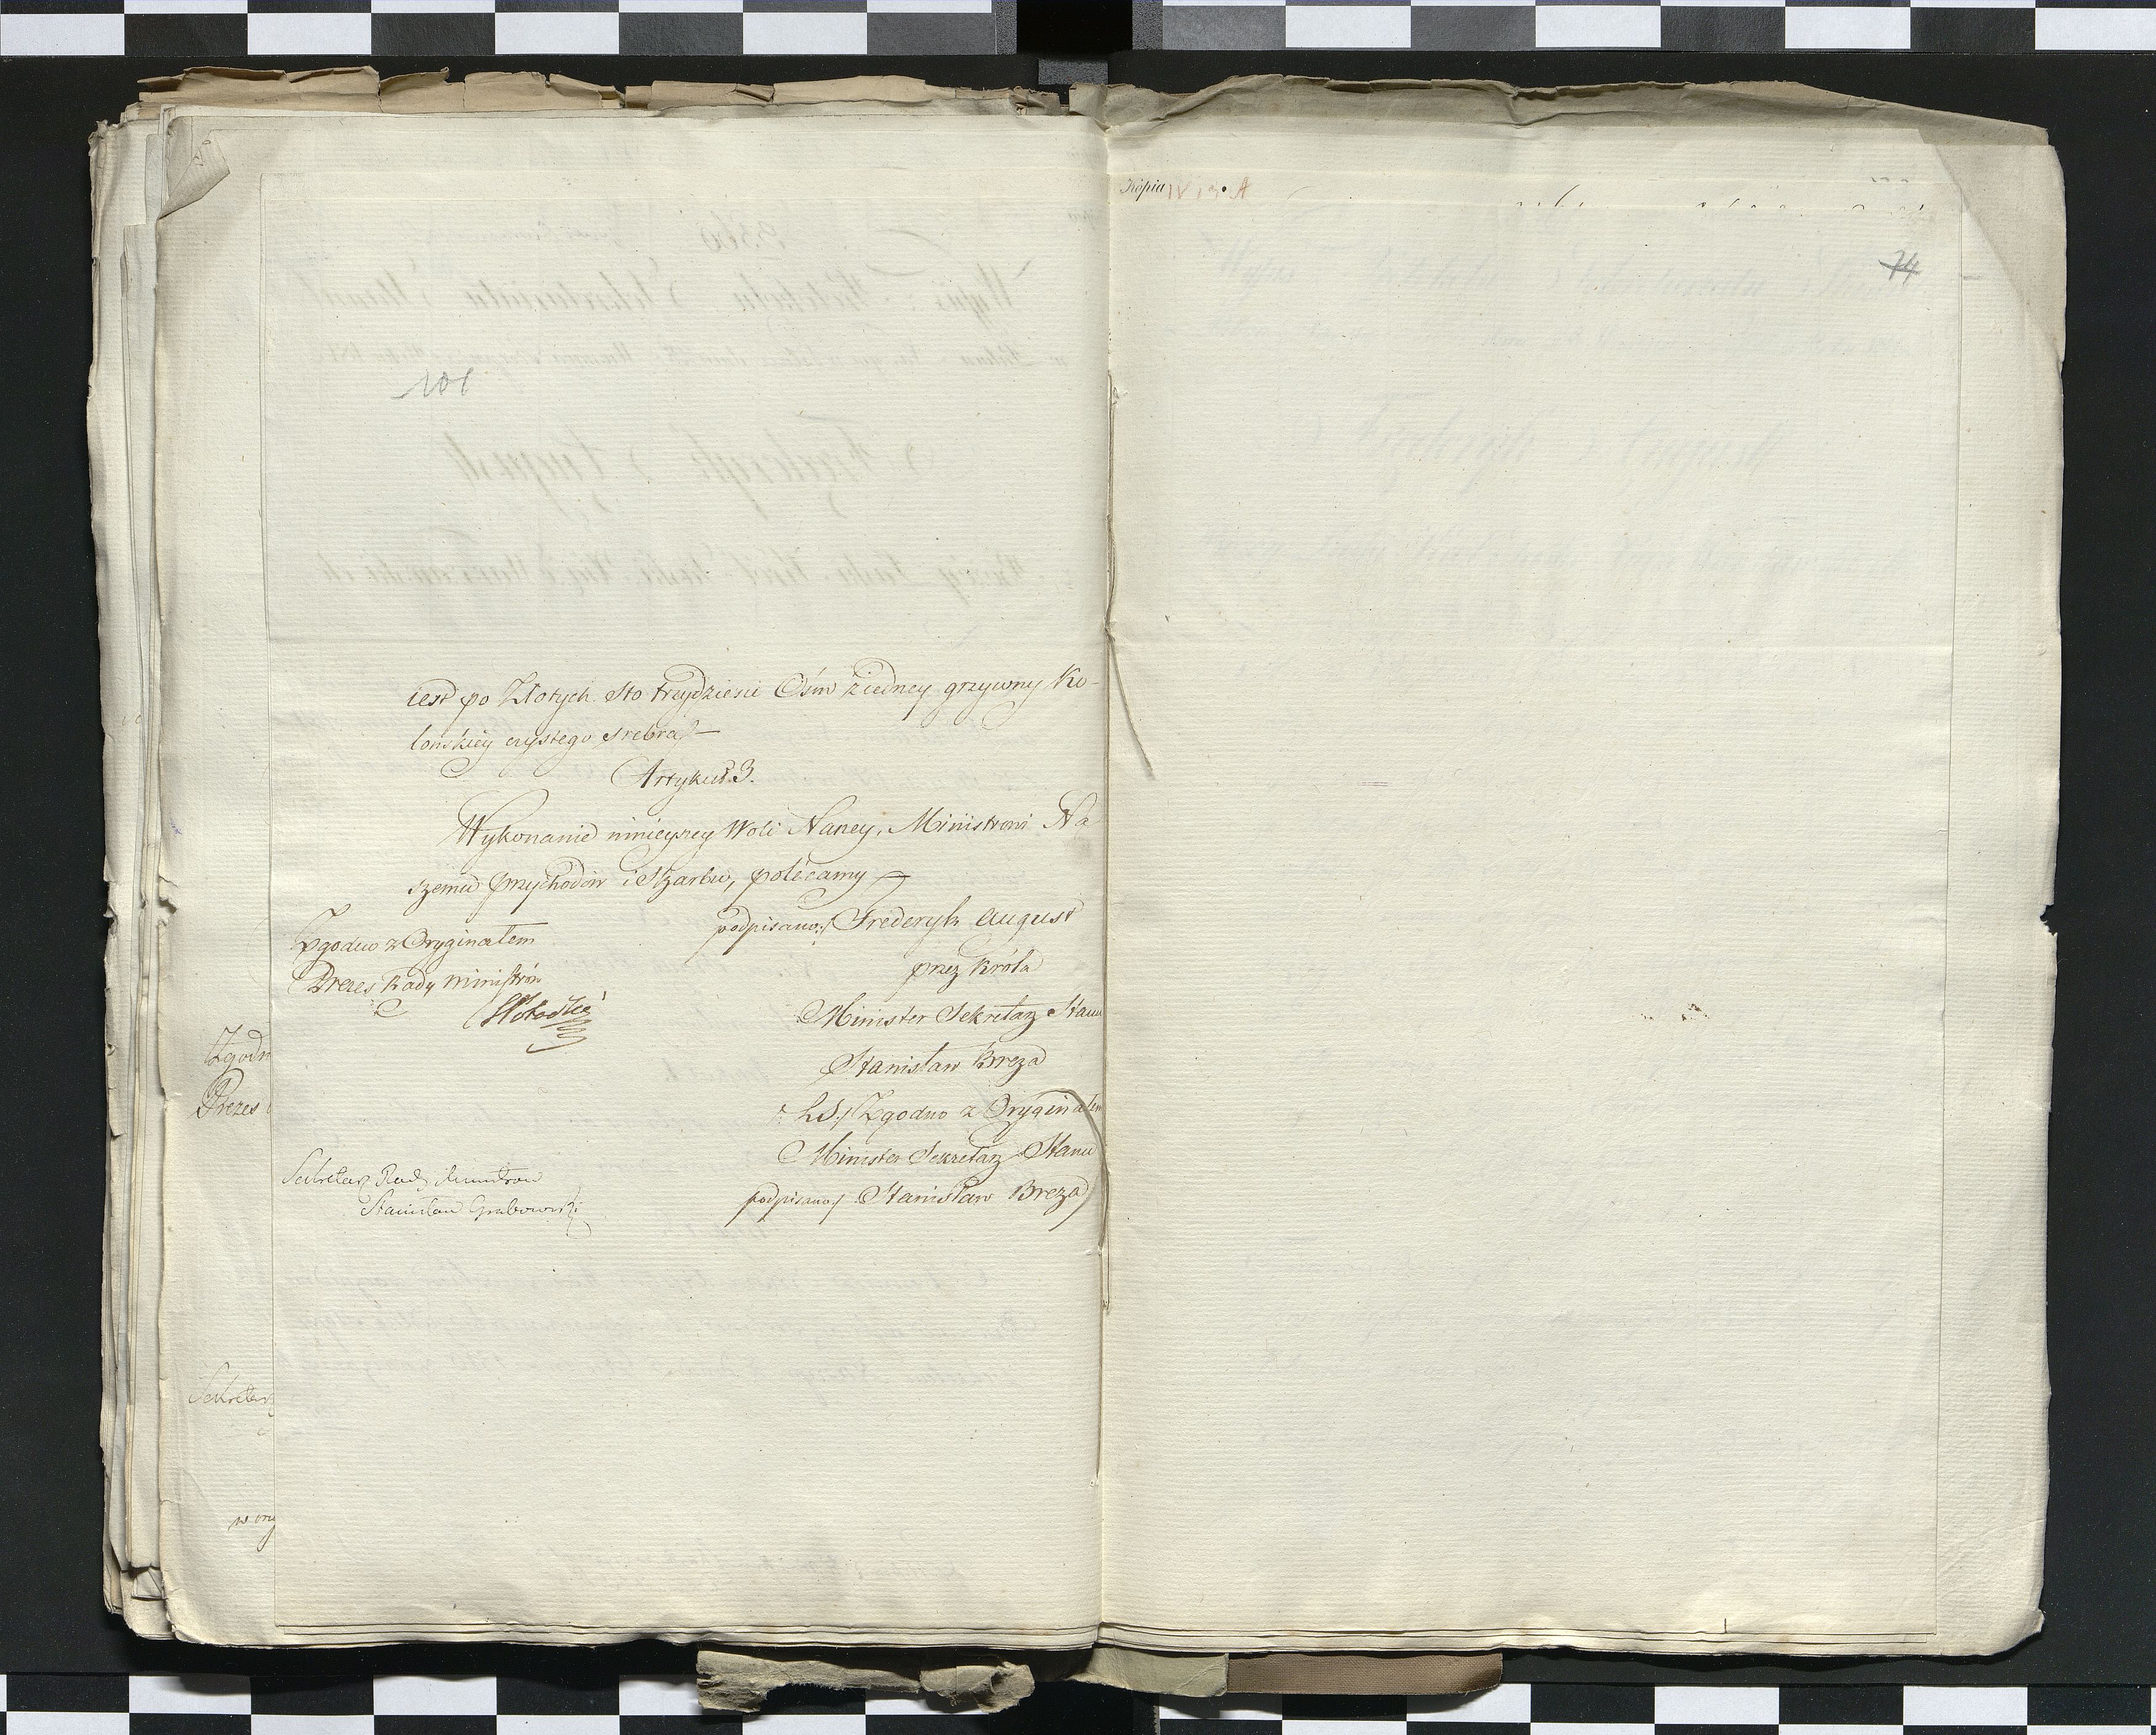 101
iest po Złotych sto trzydzieści Ośm z iedney grzywny Ko-
lońskiey czystego srebra
Artykuł 3.
Wykonanie ninieyszey Woli Naszey, Ministrowi Na
szemu przychodów i Skarbu, polecamy
podpisano:/ Frederyk August
przez Króla
Minister Sekretarz Stanu
Stanisław Breza
:/LS:/ Zgodno z Oryginałem
Minister Sekretarz Stanu
podpisano:/ Stanisław Breza
Zgodno z Oryginałem
Prezes Rady Ministrów
Sekretarz Rady Ministrow
Stanisław Grabowski
Zgodn
Prezes
Sekretarz
w ory
Kopia
74